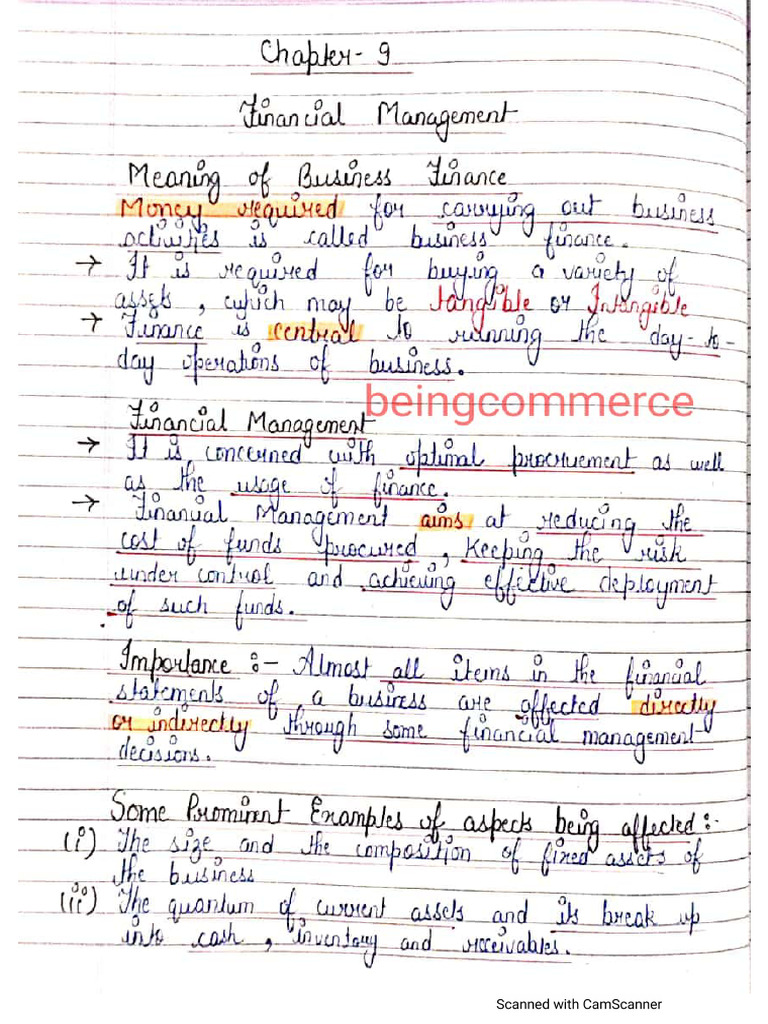 Chapter - 9
Financial Management
Meaning of Business Finance
Money required for carrying out business
activities is called business finance.
→ It is required for buying a variety of
assets, which may be tangible or Intangible
→ Finance is central to running the day-to-
day operations of business.
beingcommerce
Financial Management
→ It is concerned with optimal procurement as well
as the usage of finance.
→ Financial Management aims at reducing the
cost of funds procured, keeping the risk
under control and achieving effective deployment
of such funds.
Importance :- Almost all items in the financial
statements of a business are affected directly
or indirectly through some financial management
decisions.
Some Prominent Examples of aspects being affected :-
(i) The size and the composition of fixed assets of
the business
(ii) The quantum of current assets and its break up
into cash, inventory and receivables.
Scanned with CamScanner